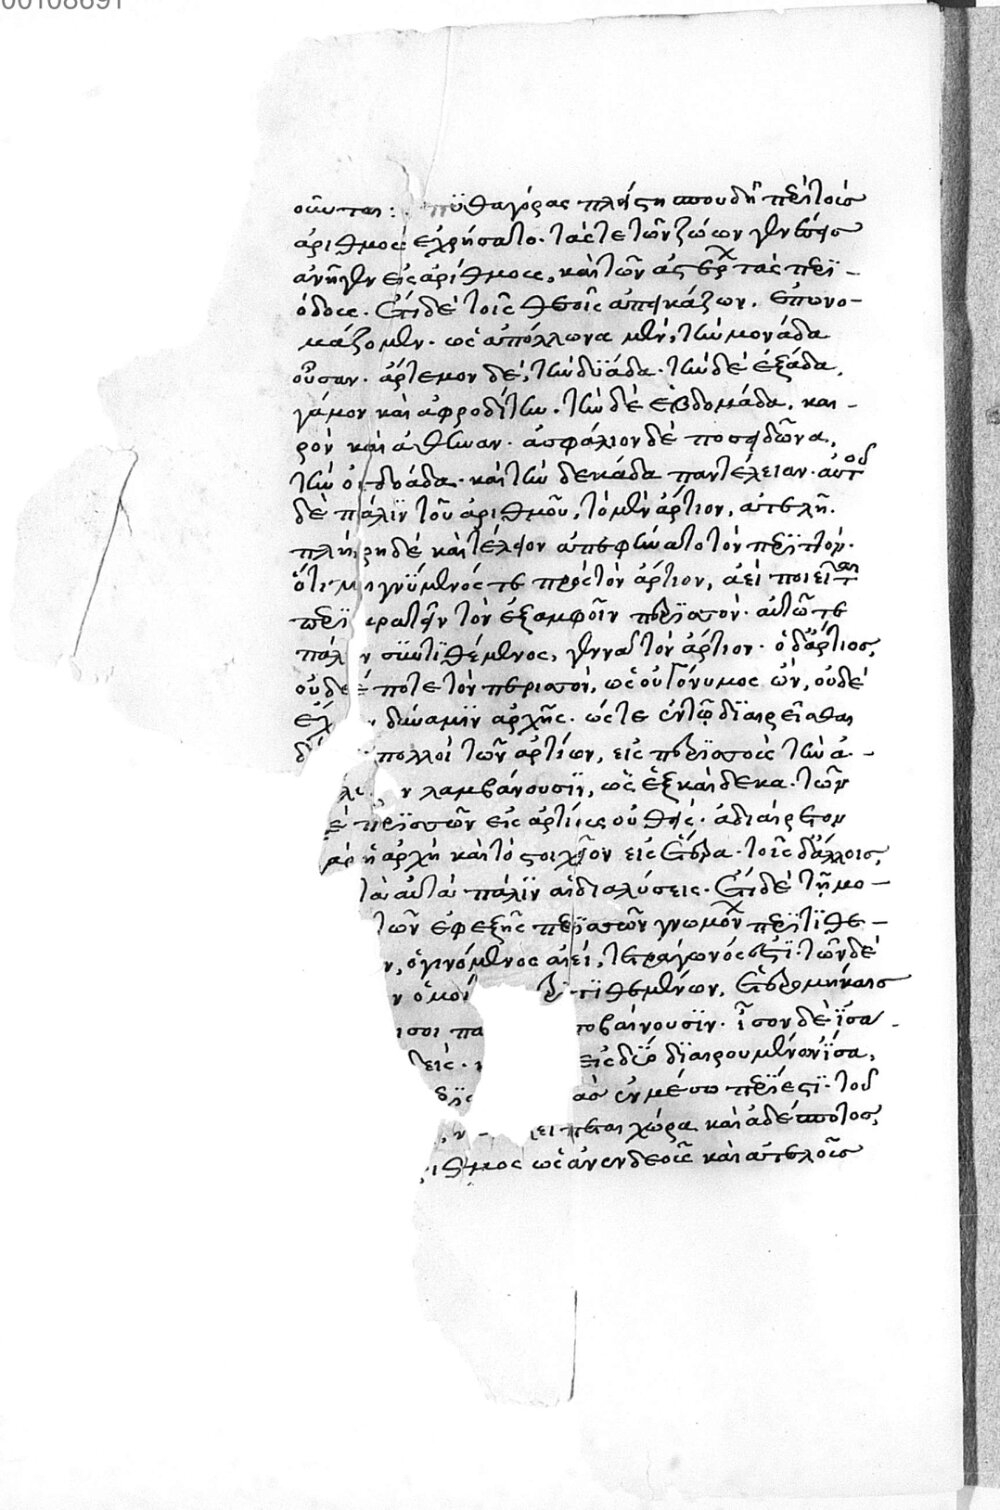 00108691
οῦνται: πϋθαγόρας πλείστη σπουδῆ περὶ τοὺς
ἀριθμοὺς ἐχρήσατο. τάς τε τῶν ζώων γενέσεις
ἀνῆγεν εἰς ἀριθμοὺς, καὶ τῶν ἀστέρων τὰς περϊ-
όδους. ἔτι δὲ τοῖς θεοῖς ἀπεικάζων. ἐπωνο-
μάζομεν. ὡς ἀπόλλωνα μὲν, τὴν μονάδα
οὖσαν. ἄρτεμον δὲ, τὴν δϋάδα. τὴν δὲ ἑξάδα,
γάμον καὶ ἀφροδίτην. τὴν δὲ ἑβδομάδα, και-
ρὸν καὶ ἀθηνᾶν. ἀσφάλιον δὲ ποσειδῶνα,
τὴν ὀγδοάδα. καὶ τὴν δεκάδα παντέλειαν. αὐτοῦ
δὲ πάλϊν τοῦ ἀριθμοῦ, τὸ μὲν ἄρτιον, ἀτελῆ.
πλήρη δὲ καὶ τέλειον ἀπεφήνατο τὸν περϊττόν.
ὅτι μιγνϋμενός τε πρὸς τὸν ἄρτιον, ἀεὶ ποιεῖται
περϊ κρατεῖν τὸν ἐξ ἀμφοῖν περϊσσόν. αὑτῶ τε
πάλιν σϋντϊθέμενος, γεννᾶ τὸν ἄρτιον. ὁ δ' ἄρτιος,
οὐδέποτε τὸν περισσὸν, ὡς οὐ γόνυμος ὢν, οὐδὲ
ἔχ ν δύναμϊν ἀρχῆς. ὥστε ἐν τῶ δϊαιρεῖσθαι
πολλοὶ τῶν ἀρτίων, εἰς περϊσσοὺς τὴν ἀ-
λυ ν λαμβάνουσϊν, ὡς ἓξ καὶ δεκα. τῶν
ὲ περϊσσῶν εἰς ἀρτίους οὐθείς. ἀδιαίρετον
ὰρ ἡ ἀρχὴ καὶ τὸ στοιχεῖον εἰς ἕτερα. τοῖς δ' ἄλλοις,
τὰ αὐτὰ πάλϊν αἱ διαλύσεις. ἔτι δὲ τῆ μο-
τῶν ἐφεξῆς περϊσσῶν γνωμόνων περϊτϊθε-
ν, ὁ γινόμενος ἀεὶ, τετράγωνός ἐστϊ. τῶν δὲ
ν ὁμοί περϊτϊθεμένων, ἑτερομήκεις
ισοι πά ποβαίνουσϊν. ἴσον δὲ ϊσα-
δεὶς. εἰς δύο δϊαιρουμένων ϊσα,
δϊς ὰς ἐν μέσω περϊεστϊ. τοῦ
ειπεται χώρα καὶ ἀδέσποτος,
ιθμος ὡς ἂν ἐνδεοῦς καὶ ἀτελοῦς